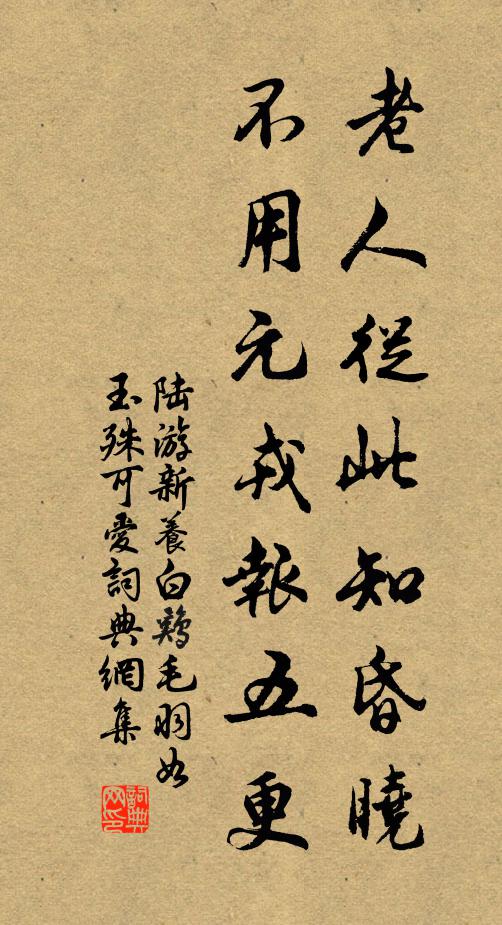 老人從此知昏曉
不用元戎報五更
陆游新養白鷄毛羽如
玉殊可愛詞典網集
詞典網印